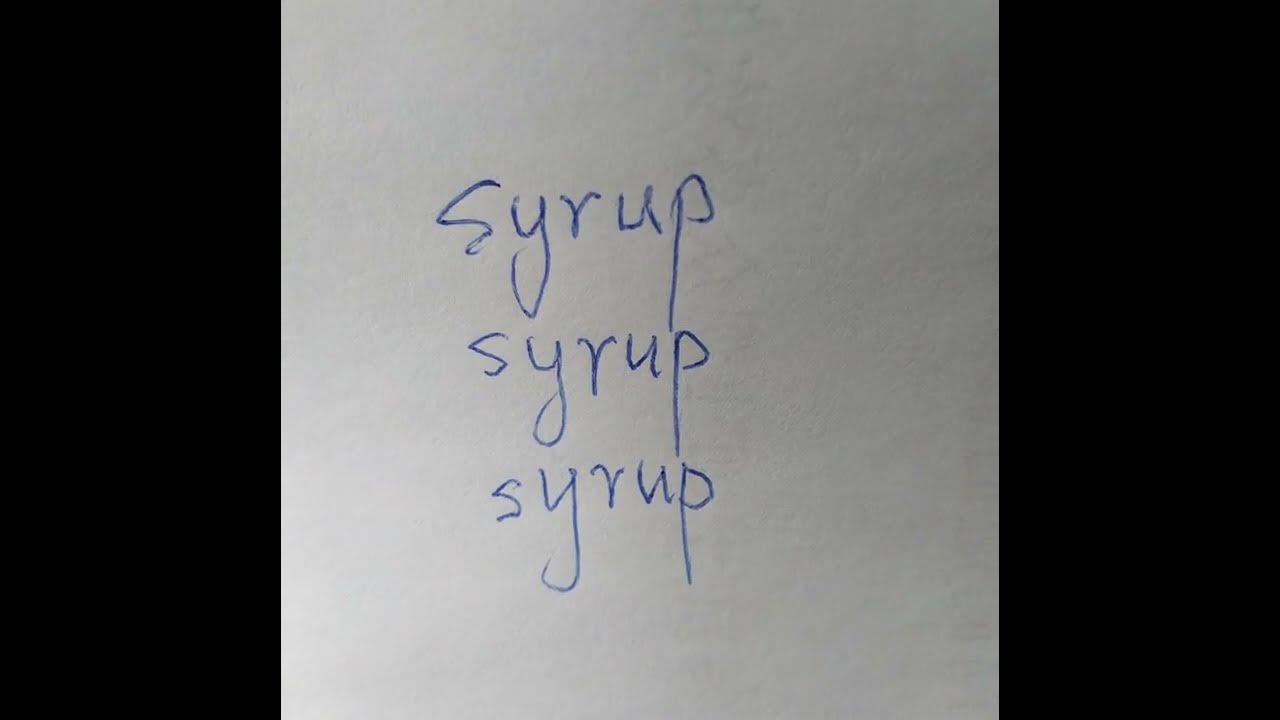 syrup
syrup
syrup